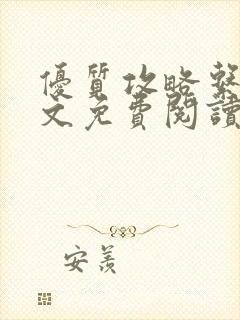 優質攻略繫
文免費閱讀
安羨